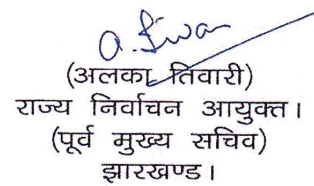 (अलका तिवारी)
राज्य निर्वाचन आयुक्त।
(पूर्व मुख्य सचिव)
झारखण्ड।